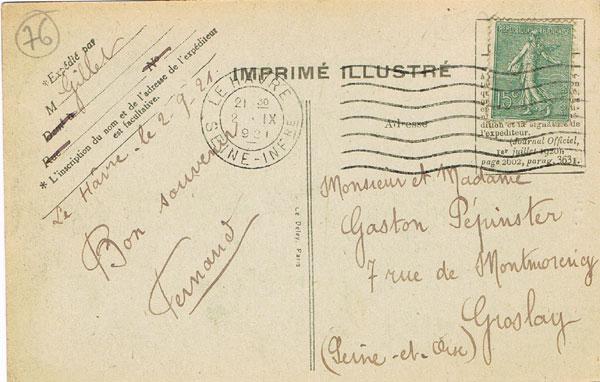 76
*Expédié par
M Gillet
Rue
* L'inscription du nom et de l'adresse de l'expéditeur
est facultative.
Le Hâvre - le 2-9-21
Bon souvenir
Fernand
IMPRIMÉ ILLUSTRÉ
LE HAVRE
21 30
2 IX
1921
SEINE-INFRE
Adresse
15c
dition et la signature de
l'expéditeur.
(Journal Officiel,
1er juillet 1920,
page 2002, parag. 363).
Le Deley, Paris
Monsieur et Madame
Gaston Pépinster
7 rue de Montmorency
Groslay
(Seine-et-Oise)